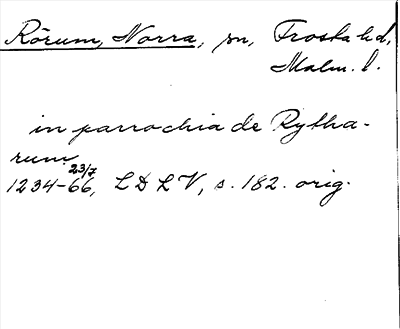 Rörum, Norra, sn, Frosta hd,
Malm. l.
in parrochia de Rytha-
rum
23/7
1234-66, L D L V, s. 182. orig.